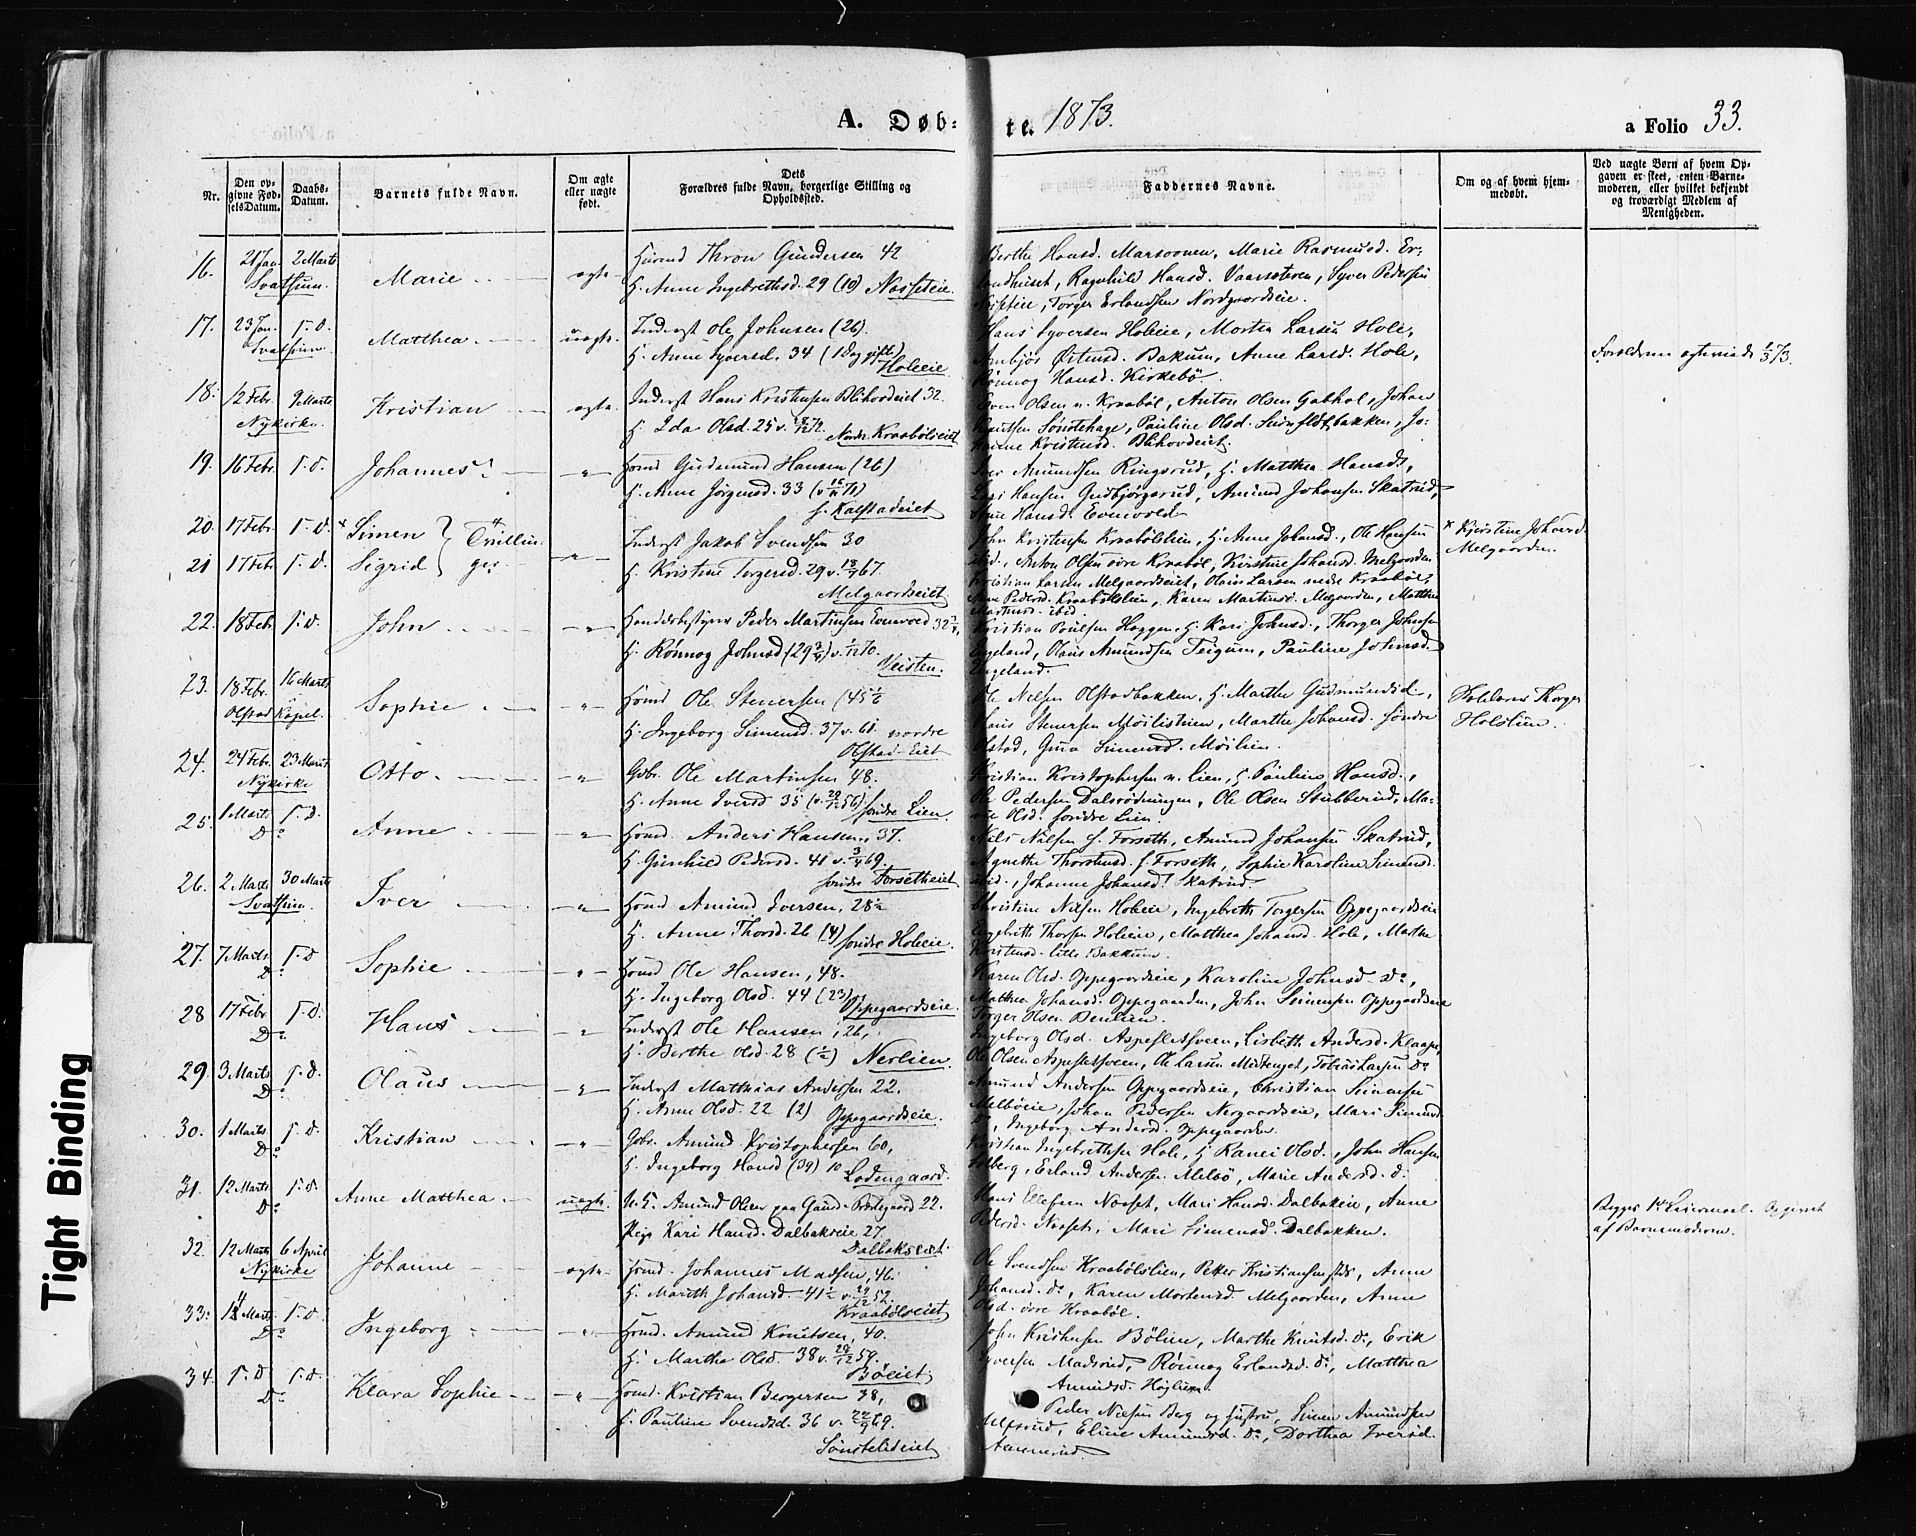 A. Døb-
te. 1873.
a Folio 33.
Nr.
Den op-
givne Fød-
selsDatum.
Daabs-
Datum.
Barnets fulde Navn.
Om ægte
eller uægte
født.
Dets
Forældres fulde Navn, borgerlige Stilling og
Opholdssted.
Faddernes Navne.
Om og af hvem hjem-
medøbt.
Ved uægte Børn af hvem Op-
gaven er skeet, enten Barne-
moderen, eller hvilket bekjendt
og troværdigt Medlem af
Menigheden.
16. 21 Jan 2 Marts
Svatsum.
Marie
ægte
Huusmd Thron Gundersen 42
H. Anne Ingebrethsd. 29 (10) Nasseteie.
Berthe Hansd. Marie Rasmusd. Er-
landhuset, Ragnhild Hansd. Syver Pedersen
Torger Erlandsen Nordgaardseie.
17. 23 Jan. s. d.
Svatsum
Matthea
uægte
Inderst Ole Johnsen (26).
K. Anne Syversd. 34 (1 Dag gift)
Holeeie
Hans Syversen Holeie, Morten Larsen Hole,
Østensd. Bakum, Anne Larsd. Hole,
Rønnog Hansd. Kirkebø.
Forældrene ægteviede 1/3 73.
18. 12 Febr. 9 Marts
Nykirke.
Kristian
ægte.
Inderst Hans Kristensen Blihovdeiet 32.
H. Ida Olsd. 25 v.
Nordr. Kraabølseiet
Even Olsen n. Kraabøl, Anton Olsen Gabhol, Johan
Knutsen Sønstehage, Pauline Olsd. Jo-
hanne Kristensd. Blihovdeiet.
19. 16 Febr. s. d.
Johannes
Huusmd Gudmund Hansen (26)
H. Anne Jørgensd. 33 (v 71)
s. Kalstadeiet
Iver Amundsen Ringsrud, H. Matthea Hansd.,
Hansen Gudbjørgsrud, Amund Johansen Skatrud,
Hansd. Evenvold
20. 17 Febr. s. d.
21 17 Febr. s. d.
* Simen } Tvillin-
Sigrid } ger.
Inderst Jakob Svendsen 30
H. Kristine Torgersd. 29 v. 67.
Melgaardseiet
John Kristensen Kraabølslien, H. Anne Johansd., Ole Hansen
ibid., Anton Olsen øvre Kraabøl, Kirstine Johansd. Melgaarden
Kristian Larsen Melgaardseiet, Olaus Larsen nedre Kraabøl,
Anne Pedersd. Kraabølslien, Karen Martinsd. Melgaarden, Matthea
Martinsd. ibid.
* Kjerstine Johansd.
Melgaarden.
22. 18 Febr. s. d.
John
Handelsbestyrer Peder Martinsen Evenvold 32
H. Rønnog Johnsd (29) v. 70.
Veisten.
Kristian Poulsen Haggen, H. Kari Johnsd., Thorger Johnsen
Engeland, Olaus Amundsen Teigum, Pauline Johnsd.
Engeland.
23. 18 Febr. 16 Marts
Olstad Kapel.
Sophie
Huusmd Ole Stenersen (45½
H. Ingeborg Simensd. 37 v. 61. nordre
Olstad-Eiet
Ole Nilsen Olstadbakken, H. Marthe Gudmundsd.,
Hans Stenersen Marthe Johansd. søndre
Olstad, Gina Simensd. Møilien.
Skolelærer Thorger
Holslien.
24. 24 Febr. 23 Marts
Nykirke
Otto
Gbr. Ole Martinsen 48.
H. Anne Iversd 35 (v. 56)
søndre Lien.
Kristian Kristophersen n. Lien, H. Pauline Hansd.,
Ole Pedersen Dalsrødningen, Ole Olsen Stubberud, Ma-
rie Olsd. søndre Lien.
25. 1 Marts s. d.
Do
Anne
Huusmd. Anders Hansen, 37.
H. Gunhild Pedersd. 41 v. 3/4 69.
søndre Forsetheiet
Nils Nilsen s. Forseth, Amund Johansen Skatrud,
Agnethe Thorstensd. s. Forseth, Sophie Karoline Simensd.
ibid., Johanne Johansd. Skatrud.
26. 2 Marts 30 Marts
Svatsum.
Iver
Huusmd Amund Iversen, 28½
H. Anne Thorsd. 26 (4) søndre Holeeie.
Christine Nilsen Holeie, Ingebreth Torgersen Oppegaardseie
Ingebreth Thorsen Holeie, Matthea Johansd. Hole, Marthe
Kristensd. lille Bakkum.
27. 7 Marts s. d
Do
Sophie
Huusmd Ole Hansen, 48.
H. Ingeborg Olsd. 44 (23).
Oppegaardseie.
Karen Olsd. Oppegaardseie, Karoline Johnsd. Do,
Matthea Johansd. Oppegaarden, John Simensen Oppegaardseie
Torger Olsen Benlien.
28 17 Febr s. d.
Do
Hans
Inderst Ole Hansen, 26,
H. Berthe Olsd. 28 (½) Nerlien.
Ingeborg Olsd. Aspesletsveen, Lisbeth Andersd. Klaape,
Ole Olsen Aspesletsveen, Ole Larsen Tobias Larsen Do
29 3 Marts s. d.
Do
Olaus
Inderst Matthias Andersen 22.
H. Anne Olsd. 22 (2) Oppegaardseie.
Amund Andersen Oppegaardseie, Christian Simensen
Melbøeie, Johan Pedersen Nergaardseie, Mari Simensd.
Do, Ingeborg Andersd. Oppegaarden.
30. 1 Marts s. d.
Do
Kristian
Gbr. Amund Kristophersen 60,
H. Ingeborg Hansd (39) 10
Lodengaard.
Kristian Ingebrethsen Hole, H. Ranei Olsd., John Hansen
Erland Andersen Melbø, Marie Andersd. d.
31. 12 Marts s. d.
Do
Anne Matthea
uægte.
U. K. Amund Olsen paa Gaud. Prestegaard 22.
Pige Kari Hansd. Dalbakeie 27.
Dalbakseiet.
Hans Ellefsen Nosset, Mari Hansd. Dalbakeie, Anne
Pedersd. Nosset, Mari Simensd. Dalbakken.
Begges 1ste Leiermaal. Opgivet
af Barnemoderen.
32. 12 Marts 6 April
Nykirke
Johanne
ægte
Huusmd. Johannes Madsen, 46.
H. Marith Johansd. 41½ v. 29/12 52.
Kraabølseiet
Ole Svendsen Kraabølslien, Petter Kristiansen Anne
Johansd. Do, Karen Mortensd. Melgaarden, Anne
Olsd. øvre Kraabøl.
33. 14 Marts s. d.
Do
Ingeborg
Huusmd. Amund Knutsen, 40.
H. Martha Olsd. 38 v. 28/12 59.
Bøeiet
John Kristensen Bølien, Marthe Knutsd. Do, Erik
Syversen Madsrud, Rønnog Erlandsd. Do, Matthea
Amundsd. Høylien.
34. s. d s. d.
Do
Klara Sophie
Huusmd. Kristian Bergersen 38,
H. Pauline Svendsd. 36 v. 69.
Sønsteliseiet
Peder Nilsen Berg og Hustru, Simen Amundsen
Ulvsrud, Eline Amundsd. Do, Dorthea Iversd.
Tight Binding